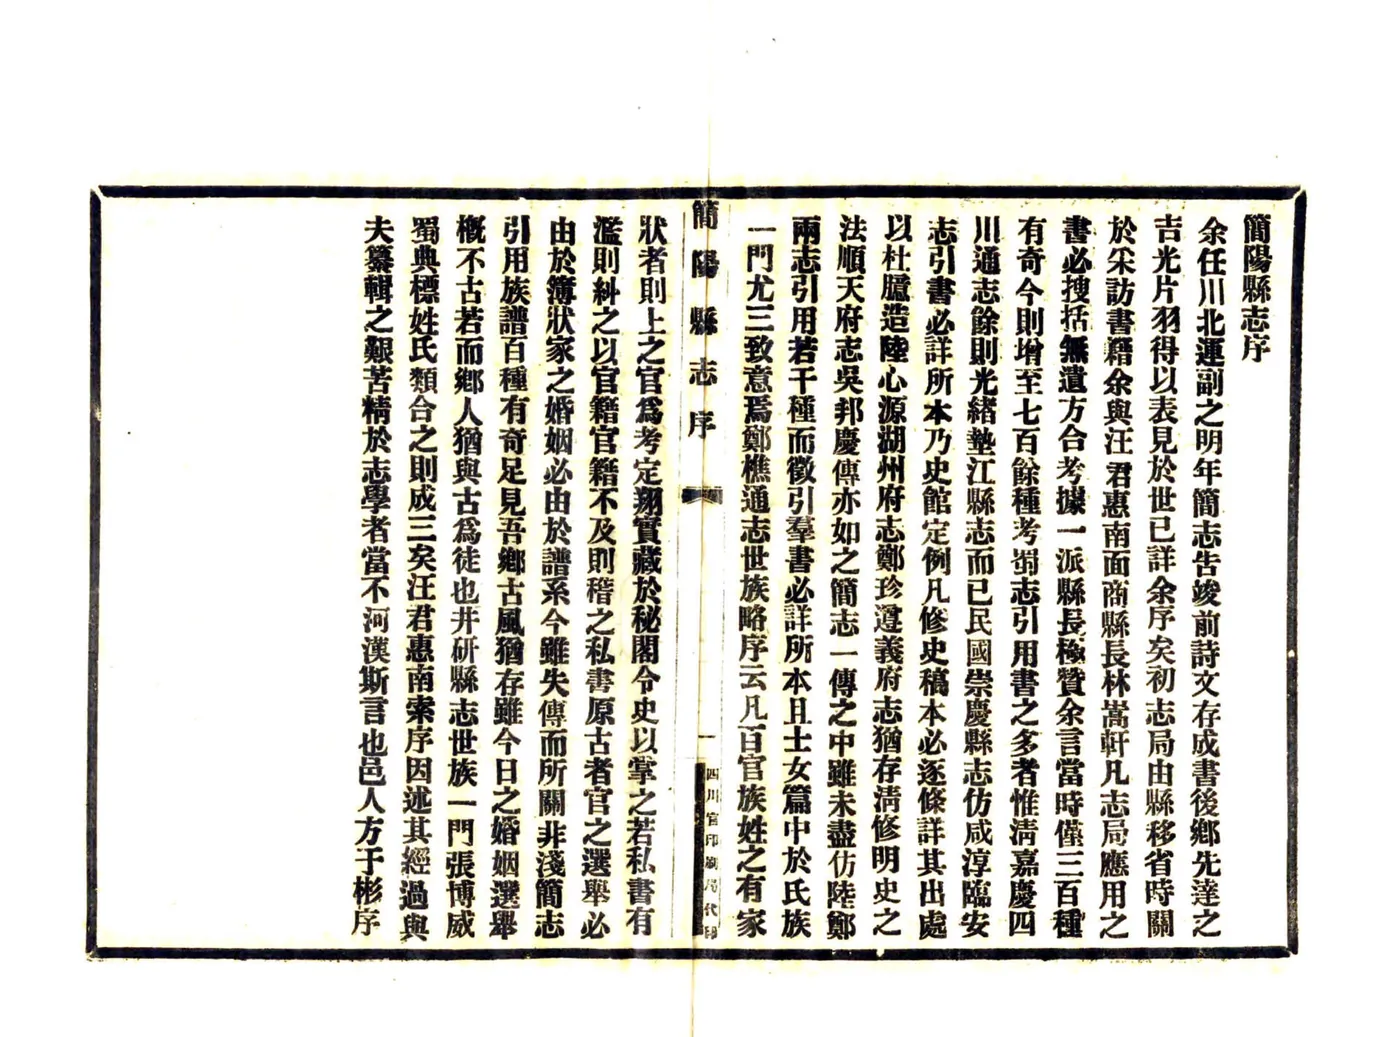 簡陽縣志序
余任川北運副之明年簡志告竣前詩文存成書後鄉先達之
吉光片羽得以表見於世已詳余序矣初志局由縣移省時關
於采訪書籍余與汪君惠南面商縣長林嵩軒凡志局應用之
書必搜括無遺方合考據一派縣長極贊余言當時僅三百種
有奇今則增至七百餘種考蜀志引用書之多者惟淸嘉慶四
川通志餘則光緒墊江縣志而已民國崇慶縣志仿咸淳臨安
志引書必詳所本乃史館定例凡修史稿本必逐條詳其出處
以杜臆造陸心源湖州府志鄭珍遵義府志猶存淸修明史之
法順天府志吳邦慶傳亦如之簡志一傳之中雖未盡仿陸鄭
兩志引用若干種而徵引羣書必詳所本且士女篇中於氏族
一門尤三致意焉鄭樵通志世族略序云凡百官族姓之有家
簡陽縣志序
一
四川官印刷局代印
狀者則上之官爲考定翔實藏於秘閣令史以掌之若私書有
濫則糾之以官籍官籍不及則稽之私書原古者官之選舉必
由於簿狀家之婚姻必由於譜系今雖失傳而所關非淺簡志
引用族譜百種有奇足見吾鄉古風猶存雖今日之婚姻選舉
槪不古若而鄉人猶與古爲徒也井研縣志世族一門張博威
蜀典標姓氏類合之則成三矣汪君惠南索序因述其經過與
夫纂輯之艱苦精於志學者當不河漢斯言也邑人方于彬序